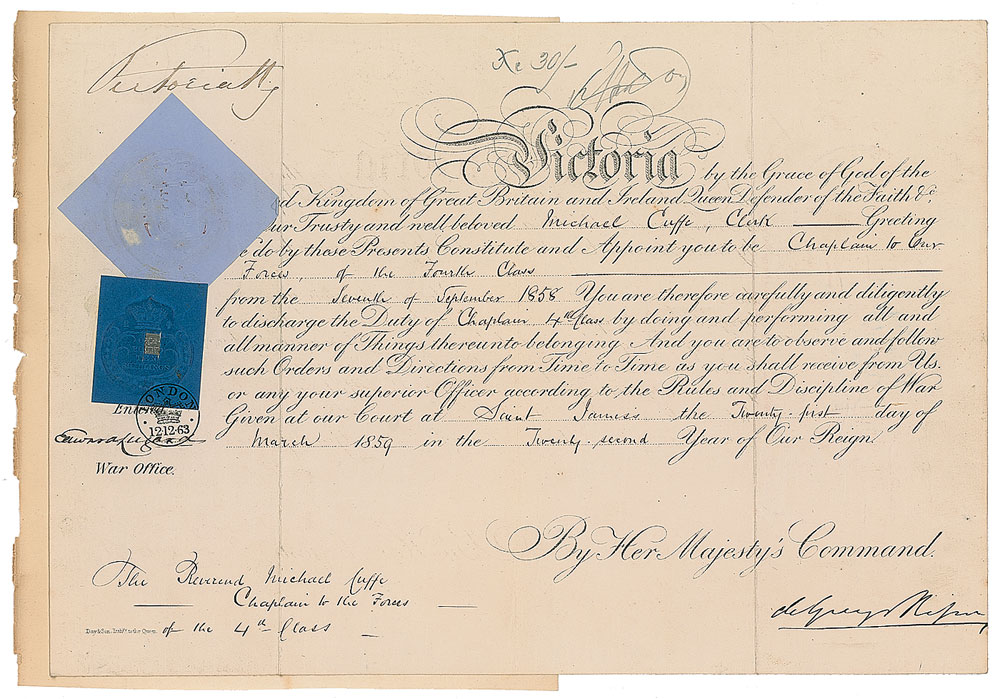 Victoria R
Xe 30/-
Victoria by the Grace of God of the
d Kingdom of Great Britain and Ireland Queen Defender of the Faith &c,
ur Trusty and well beloved Michael Cuffe, Clerk Greeting
e do by these Presents Constitute and Appoint you to be Chaplain to Our
Forces, of the Fourth Class
from the Seventh of September 1858 You are therefore carefully and diligently
to discharge the Duty of Chaplain 4th Class by doing and performing all and
all manner of Things thereunto belonging And you are to observe and follow
such Orders and Directions from Time to Time as you shall receive from Us.
or any your superior Officer according to the Rules and Discipline of War
Given at our Court at Saint James's the Twenty-first day of
March 1859 in the Twenty-second Year of Our Reign.
LONDON
12.12.63
Entered
War Office.
By Her Majesty's Command.
de Grey & Ripon
The Reverend Michael Cuffe
Chaplain to the Forces
of the 4th Class
Day & Son, Lithrs to the Queen.